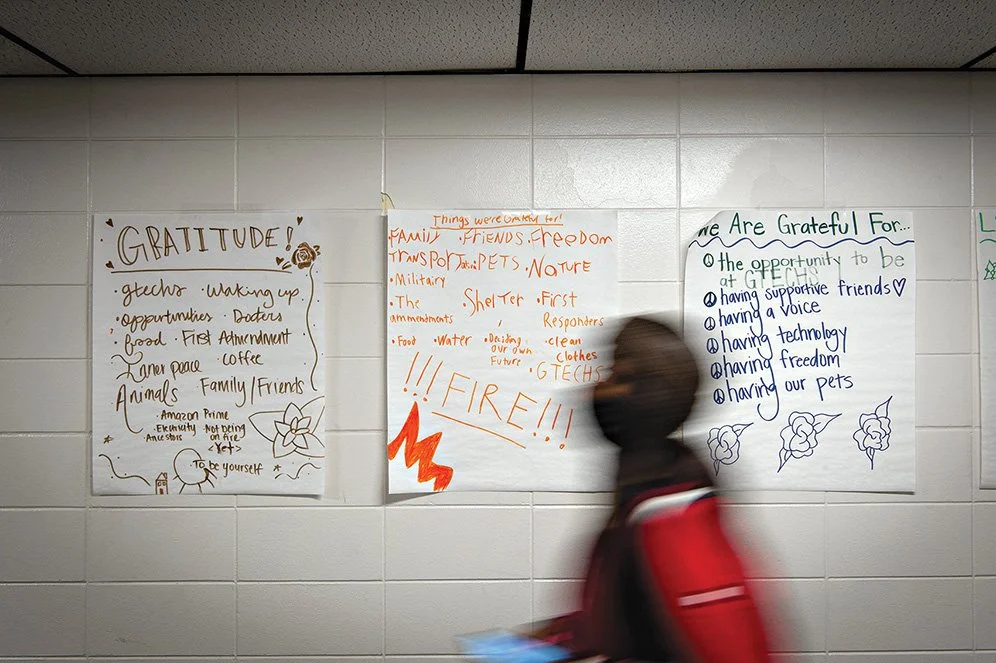 GRATITUDE!
gtechs · Waking up
· Opportunities · Doctors
· food · First Admendment
Inner peace · coffee
Animals Family/Friends
· Amazon Prime
· Electricity · Not being
· Ancestors on fire
<Yet>
· To be yourself
Things we're Grateful for!
FAMILY · FRIENDS · Freedom
TRANSPORTation · PETS · NATURE
· Military
· The · Shelter · First
ammendments Responders
· Food · Water · Deciding · clean
our own clothes
Future · GTECHS
!!!FIRE!!!
We Are Grateful For...
the opportunity to be
at GTECHS
having supportive friends♡
having a voice
having technology
having freedom
having our pets
L